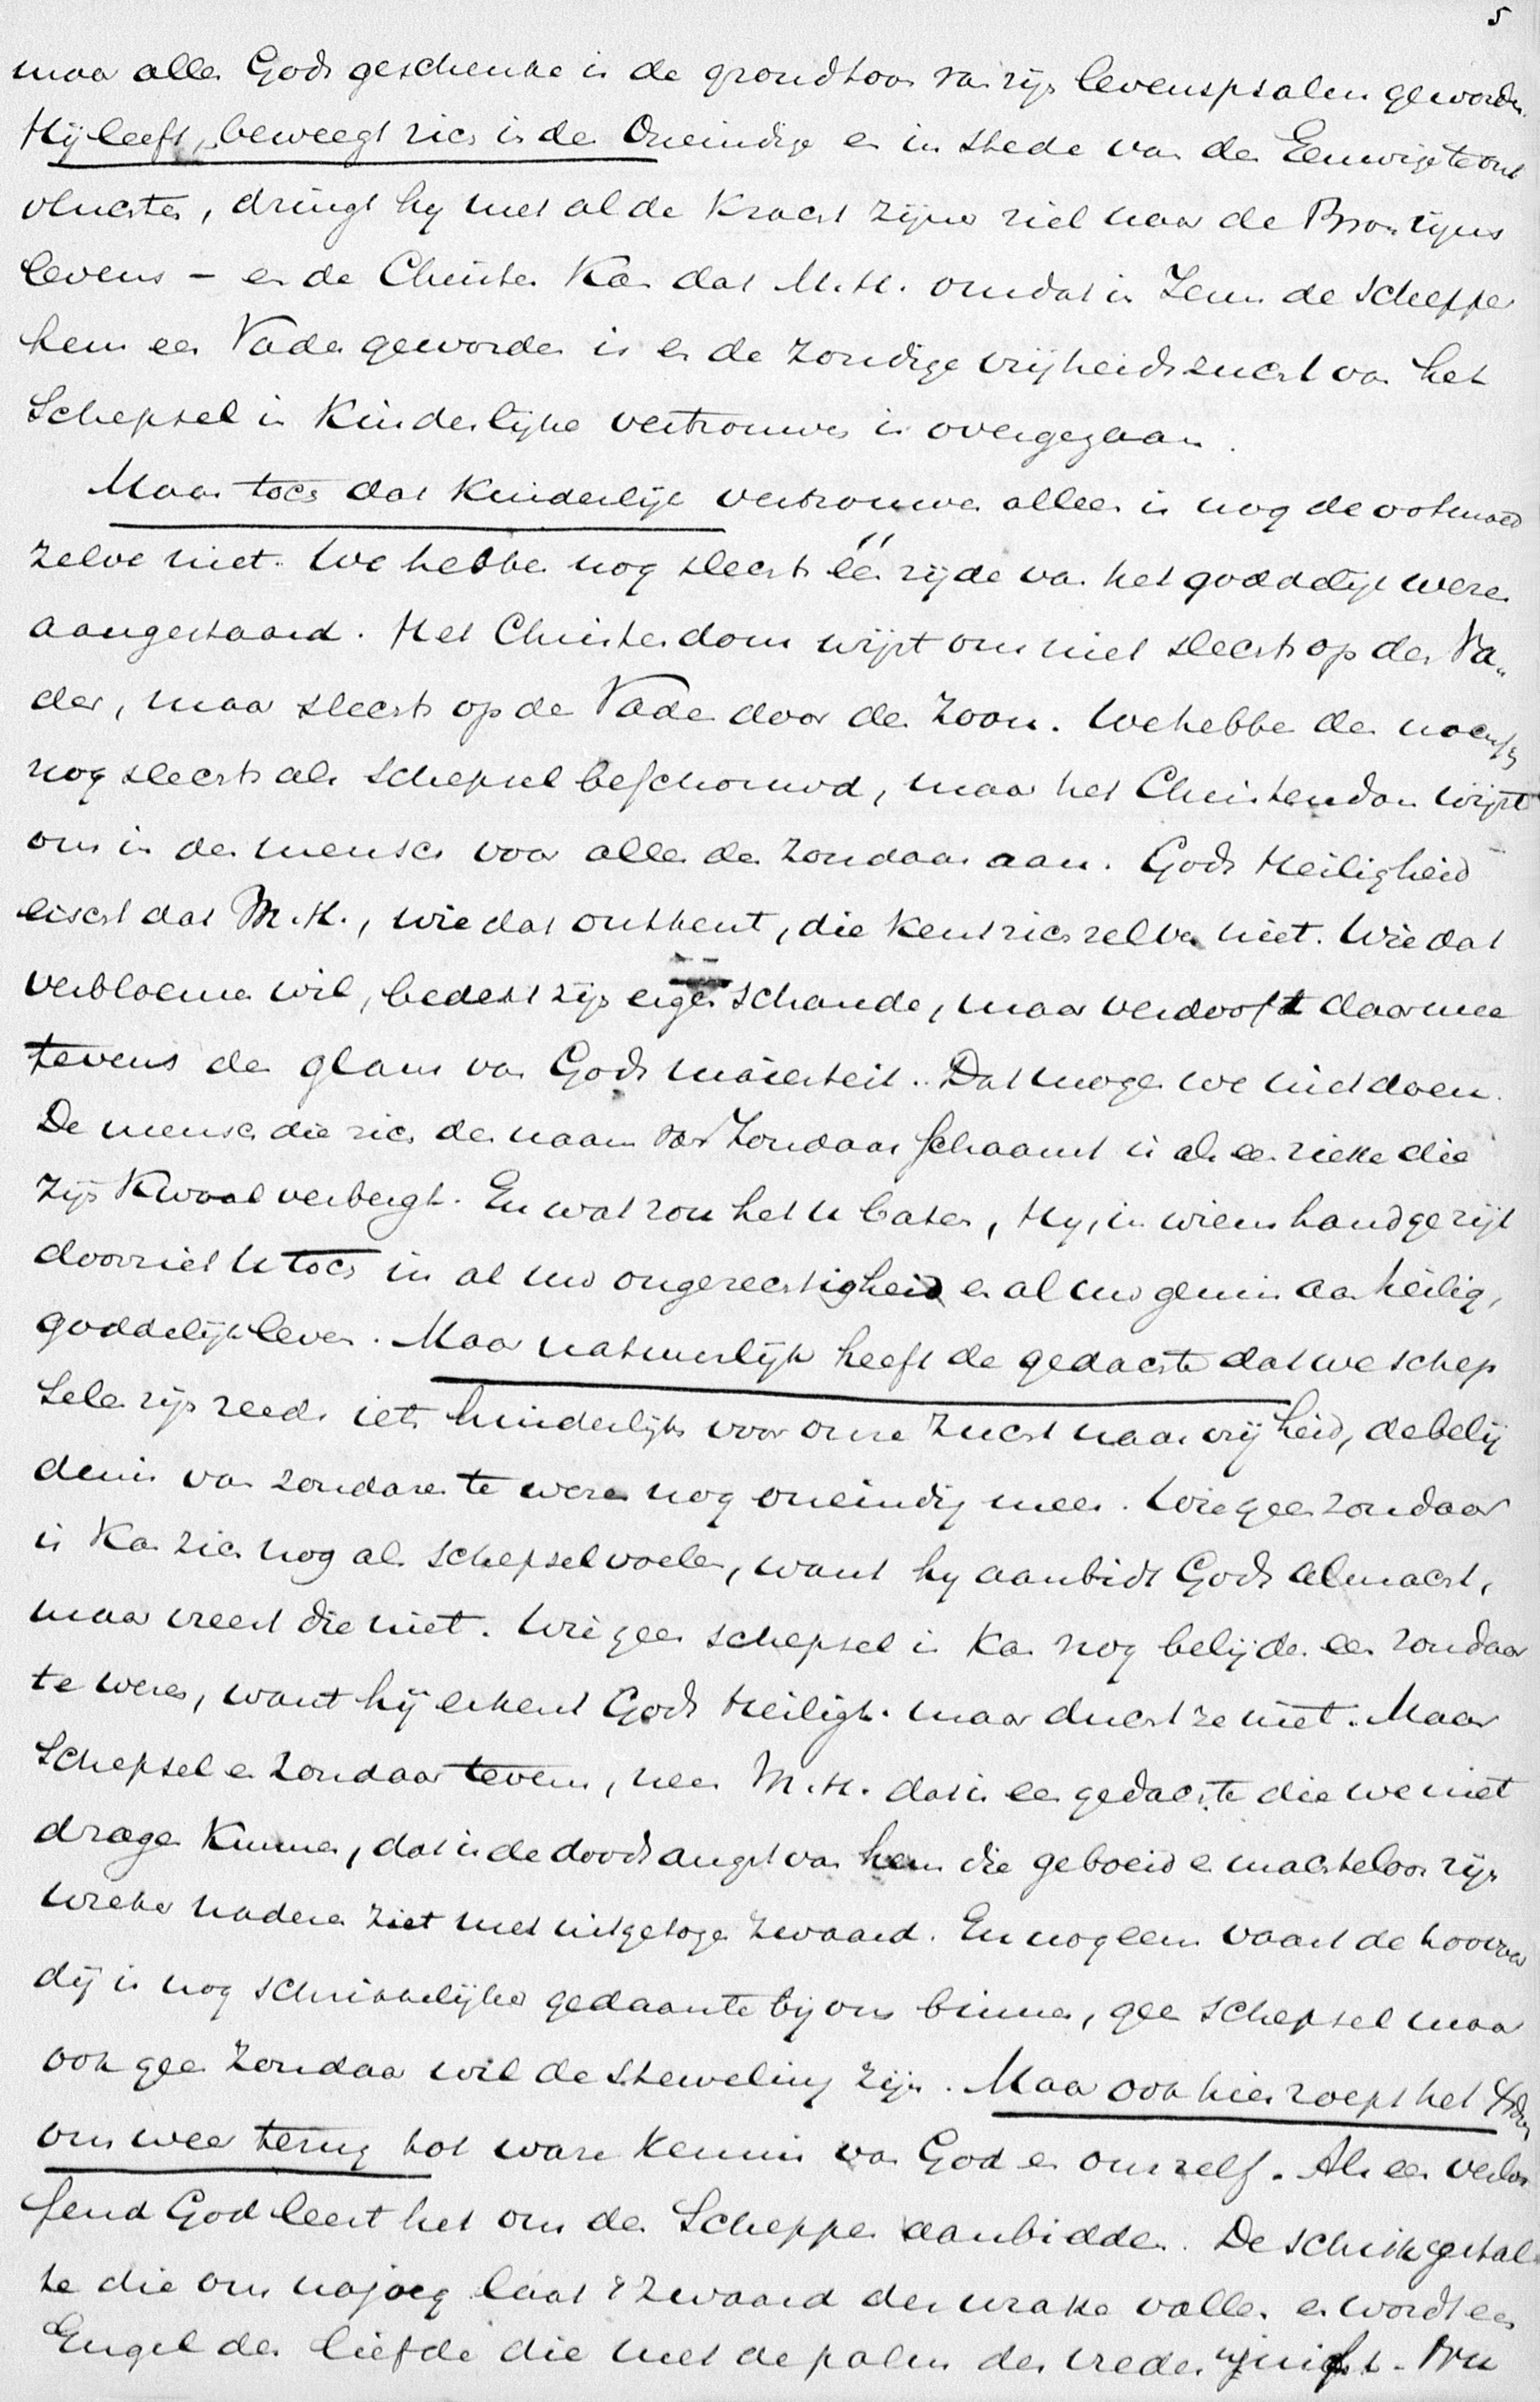 5
maar alle Gods geschenke is de grondtoon van zijn levenspsalm geworden.
Hij leeft, beweegt zich in de Oneindige en in stede van den Eeuwige te ont
vluchten, dringt hij met al de kracht zijner ziel naar de Bron zijns
levens – en de Christen kan dat M.H. omdat in Jezus de Schepper
hem een Vader geworden is en de zondige vrijheidszucht van het
Schepsel in kinderlijke vertrouwen is overgegaan.
Maar toch dat kinderlijk vertrouwen alleen is nog de ootmoed
zelve niet. We hebben nog slechts één zijde van het goddelijk wezen
aangestaard. Het Christendom wijst ons niet slechts op den Va„
der, maar slechts op den Vader door den Zoon. We hebben den mensch
nog slechts als schepsel beschouwd, maar het Christendom wijst
ons in den mensch voor alles den zondaar aan. Gods Heiligheid
eischt dat M.H., wie dat ontkent, die kent zich zelven niet. Wie dat
verbloemen wil, bedekt zijn eigen schande, maar verdooft daarmee
tevens den glans van Gods majesteit. Dat mogen we niet doen.
De mensch die zich den naam van Zondaar schaamt is als een zieke die
zijn kwaal verbergt. En wat zou het u baten, Hij, in wiens hand ge zijt
doorziet u toch in al uw ongerechtigheid en al uw gemis aan heilig,
goddelijk leven. Maar natuurlijk heeft de gedachte dat we schep
selen zijn reeds iets hinderlijks voor onze zucht naar vrijheid, de belij
denis van zondaren te wezen nog oneindig meer. Wie geen zondaar
is kan zich nog als schepsel voelen, want hij aanbidt Gods almacht,
maar vreest die niet. Wie geen schepsel is kan nog belijden een zondaar
te wezen, want hij erkent Gods Heiligh. maar ducht ze niet. Maar
Schepsel en zondaar tevens, neen M.H. dat is een gedachte die we niet
dragen kunnen, dat is de doodsangst van hem die geboeid en machteloos zijn
wreker naderen ziet met uitgetogen zwaard. En nog eens vaart de hoovaar
dij in nog schrikkelijker gedaante bij ons binnen, geen schepsel maar
ook geen zondaar wil de sterveling zijn. Maar ook hier roept het Xdom
ons weer terug tot ware kennis van God en ons zelf. Als een verlos
send God leert het ons den Schepper aanbidden. De schrikgestal
te die ons najoeg laat 't zwaard der wrake vallen en wordt een
Engel der liefde die met de palm des vredes wuift. Nu